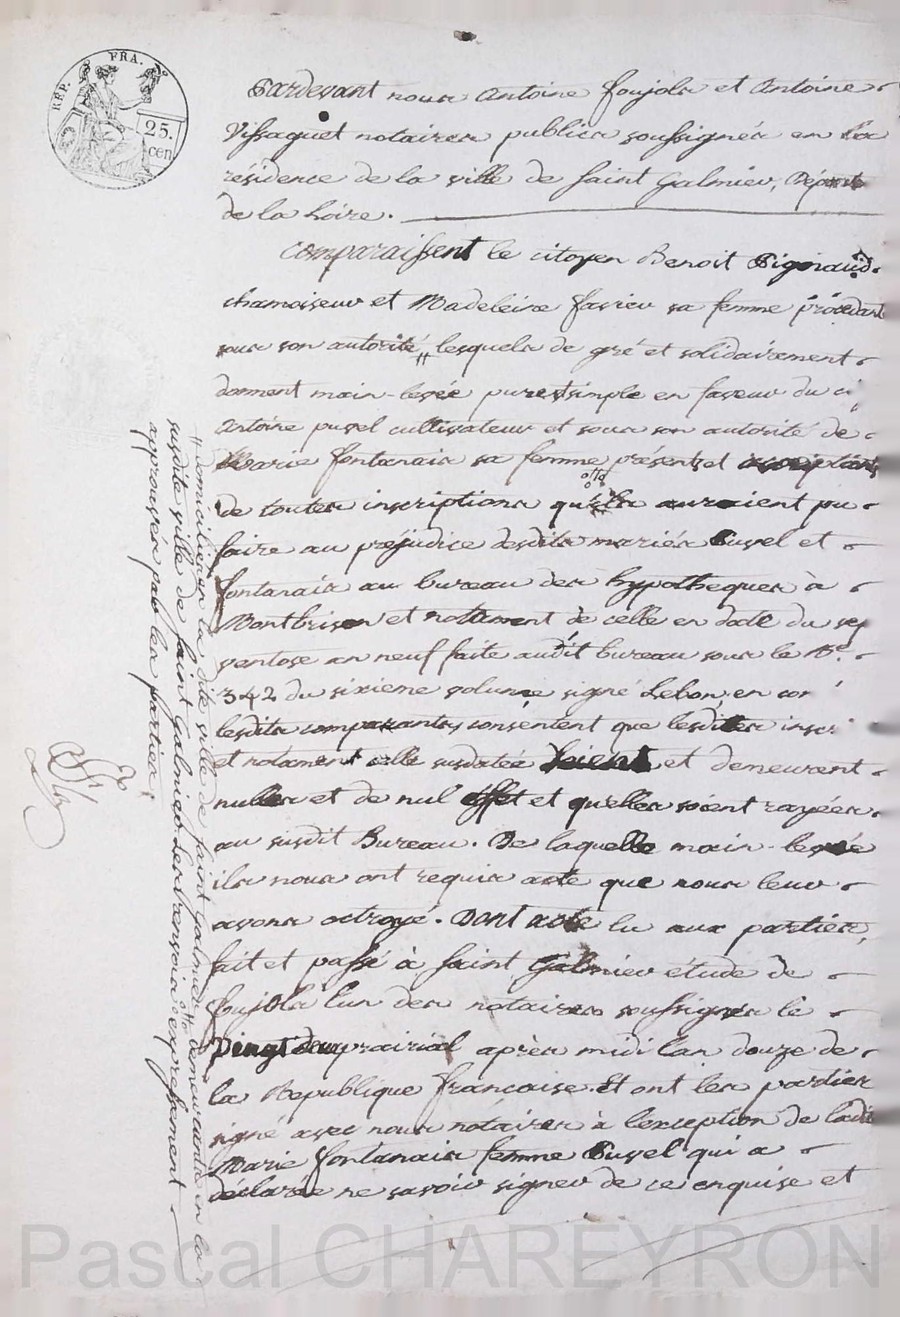 REP. FRA.
25.
cen
Pardevant nous Antoine foujols et Antoine
Vissaguet notaires publics soussignés en la
résidence de la ville de Saint Galmier, Départ
de la Loire.
comparaissent le citoyen Benoit Pignaud
chamoiseur et Madeleine favier sa femme procédant
sous son autorité, lesquels de gré et solidairement
donnent main-levée pure et simple en faveur du ci
Antoine puvel cultivateur et sous son autorité de
Marie fontanais sa femme présents et
de toutes inscriptions qu'ils auraient pu
faire au préjudice desdits mariés Puvel et
fontanais au bureau des hypotheques à
Montbrison et notament de celle en date du sep
ventose an neuf faite audit bureau sous le No.
342 du sixieme volume signé Lebon, en con
lesdits comparants, consentent que lesdites inscri
et notament celle susdatée soient et demeurent
nulles et de nul effet et quelles soient rayées
au susdit Bureau. De laquelle main-levée
ils nous ont requis acte que nous leur
avons octroyé. Dont acte lu aux parties,
fait et passé à Saint Galmier étude de
foujols lun des notaires soussignés le
Vingt deux prairial après midi lan douze de
la Republique francaise. Et ont les parties
signé avec nous notaires à l'exception de ladit
Marie fontanais femme Puvel qui a
déclarée ne savoir signer de ce enquise et
# domiciliés en la dite ville de saint Galmier demeurants en la
susdite ville de saint Galmier Les renvois expressément
approuvés par les parties
Pascal CHAREYRON